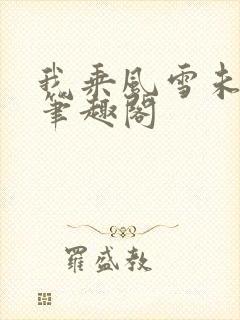 我乘风雪未
笔趣阁
罗盛教